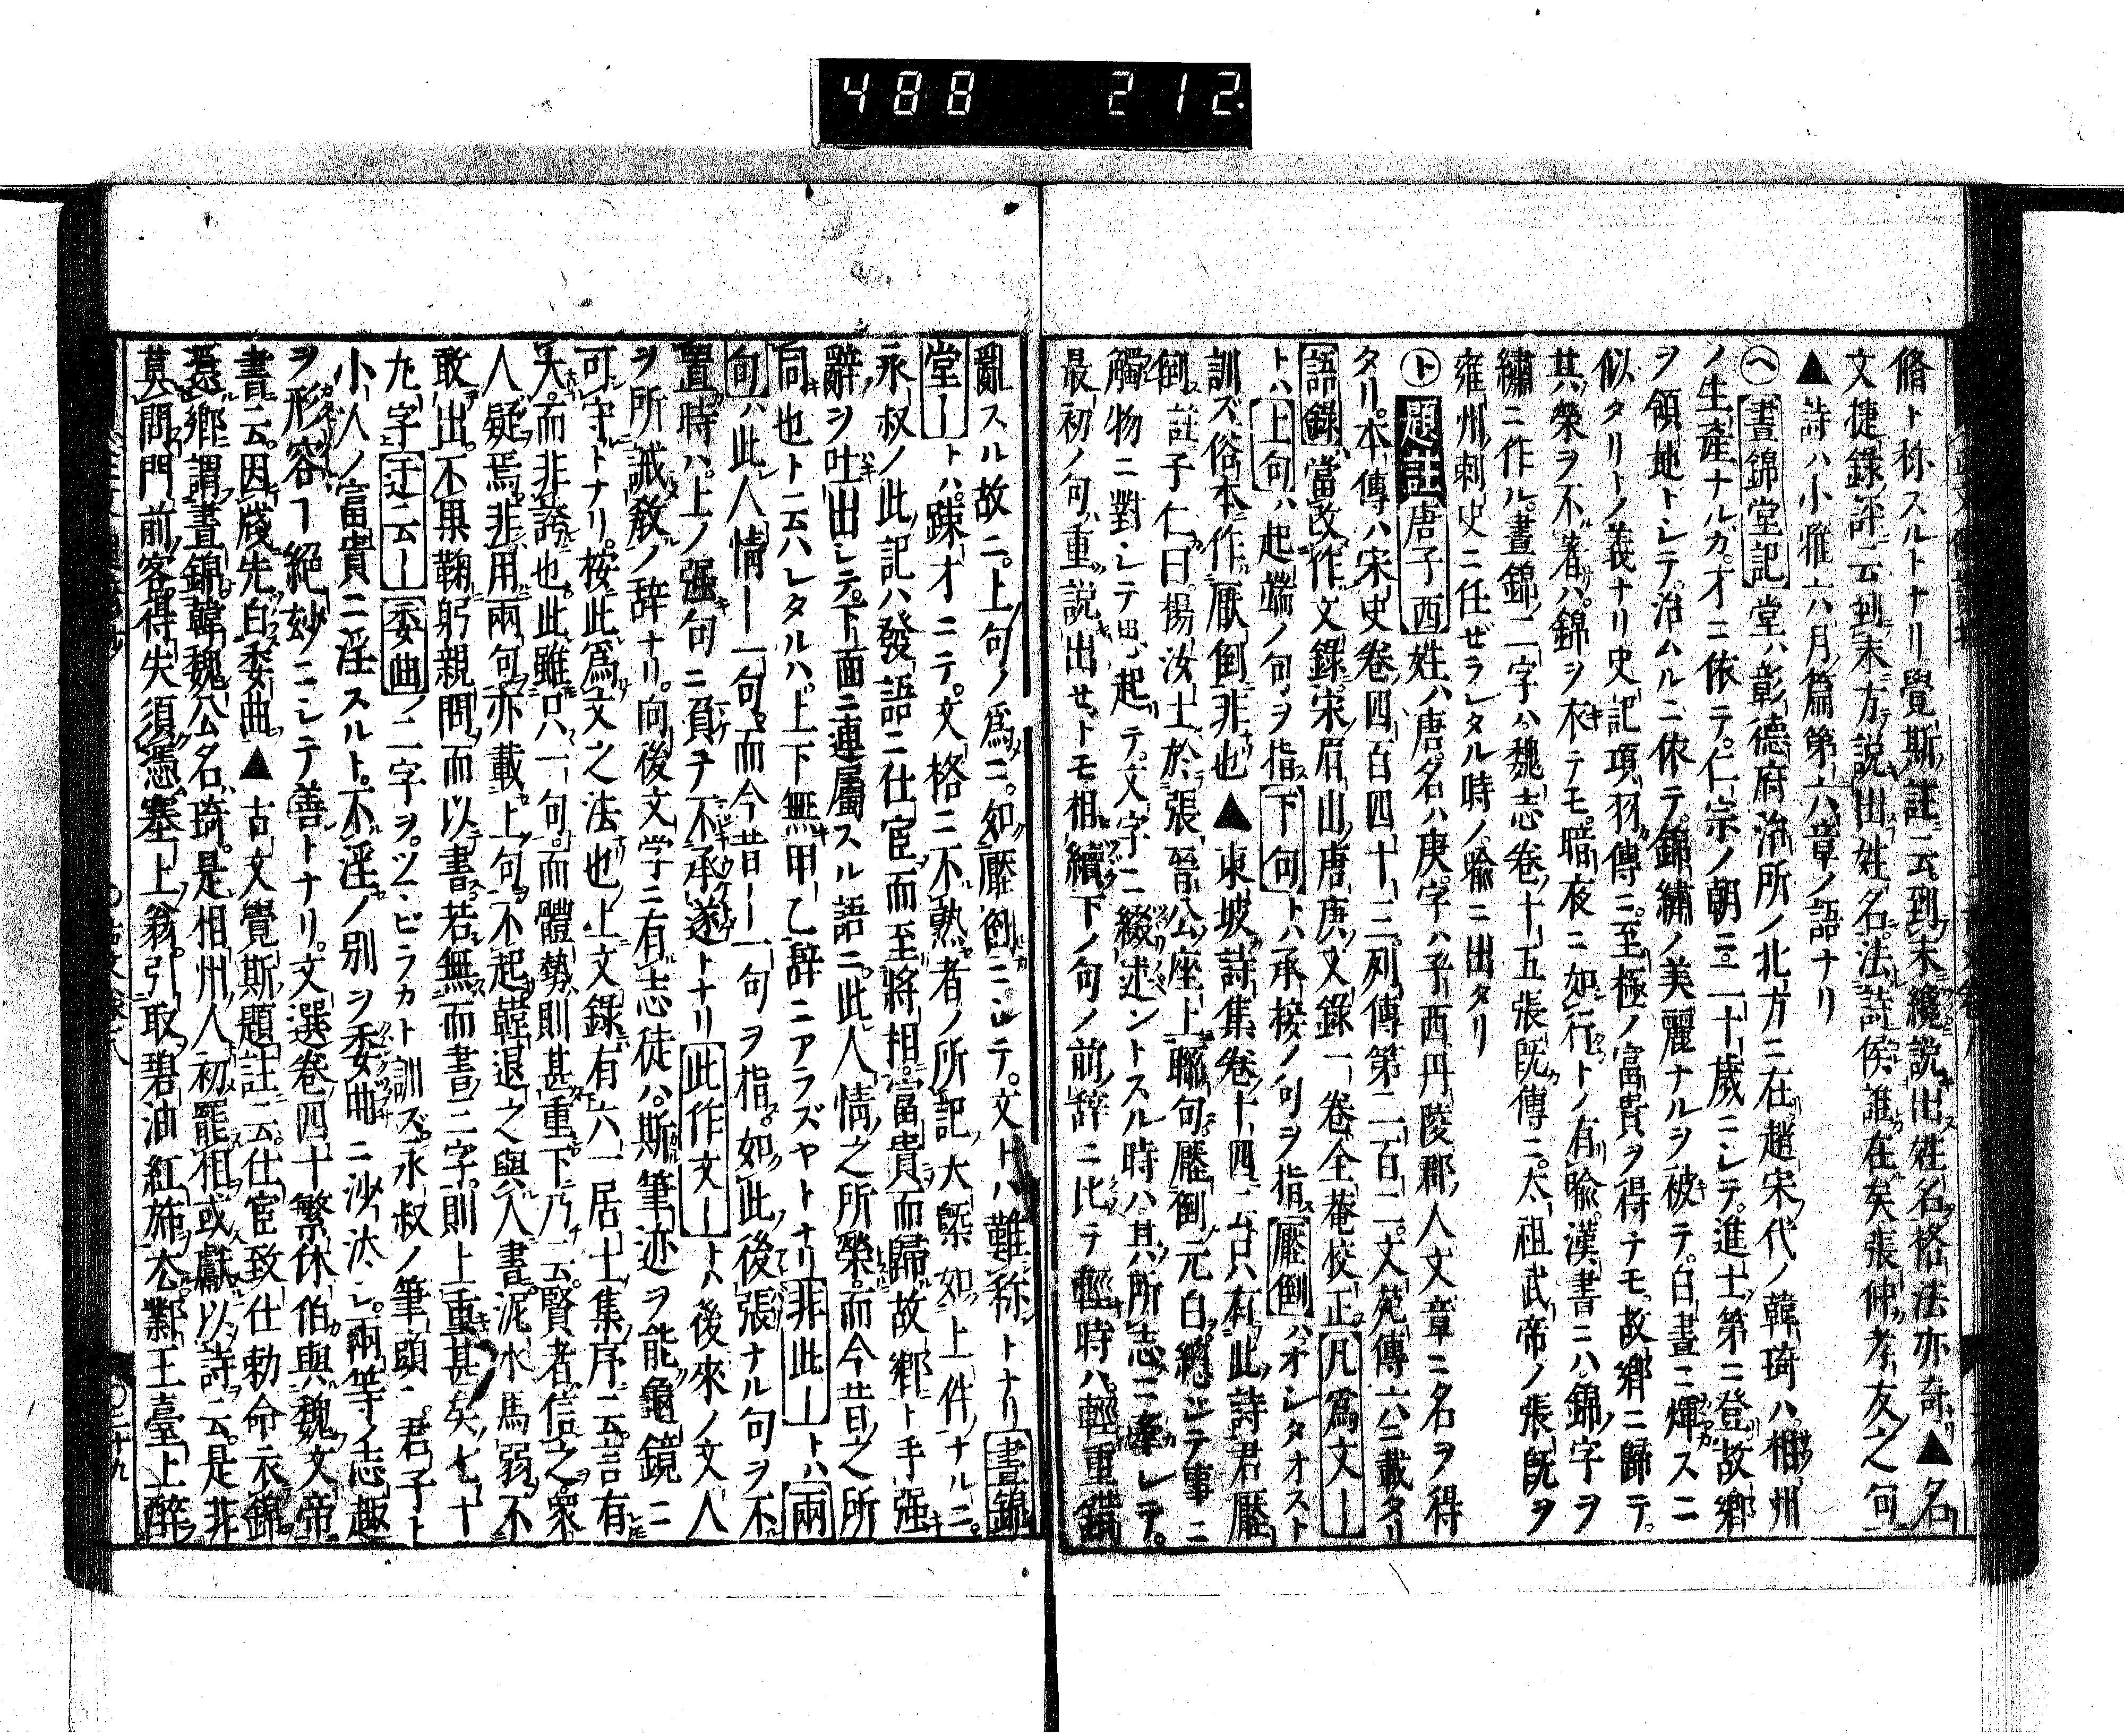 488 212
脩ト称スルトナリ覺斯註ニ云到末纔説出姓名格法亦奇▲名
文捷錄評云到末方説出姓名法詩侯誰在矣張仲孝友之句
▲詩ハ小雅六月篇第六章ノ語ナリ
㋬晝錦堂記堂ハ彰德府治所ノ北方ニ在趙宋代ノ韓琦ハ相州
ノ生產ナルガ才ニ依テ仁宗ノ朝ニ二十歲ニシテ進士第ニ登故鄉
ヲ領地トシテ治ムルニ依テ錦繡ノ美麗ナルヲ被テ白晝ニ煇スニ
似タリトノ義ナリ史記項羽傳ニ至極ノ富貴ヲ得テモ故鄉ニ歸テ
其榮ヲ不著ハ錦ヲ衣テモ暗夜ニ如行トノ有喻漢書ニハ錦字ヲ
繡ニ作ル晝錦ノ二字ハ魏志卷十五張既傳ニ太祖武帝ノ張既ヲ
雍州刺史ニ任ゼラレタル時ノ喻ニ出タリ
㋣題註唐子西姓ハ唐名ハ庚字ハ子西丹陵郡ノ人文章ニ名ヲ得
タリ本傳ハ宋史卷四百四十三列傳第二百二文苑傳六ニ載タリ
語錄當改作文錄宋眉山唐庚文錄一卷全菴校正凡爲文ー
トハ上句ハ起端ノ句ヲ指下句トハ承接ノ句ヲ指壓倒ハオシタオスト
訓ズ俗本作厭倒非也▲東坡詩集卷十四ニ云只有此詩君壓
倒註子仁曰楊汝士於張晉公座上聯句壓倒元白總ジテ事ニ
觸物ニ對シテ思起テ文字ニ綴述ントスル時ハ其所志ニ牽レテ
最初ノ句重説出セドモ相續下ノ句ノ前辞ニ比テ輕時ハ輕重錯
亂スル故ニ上句ノ爲ニ如壓倒ニシテ文トハ難称トナリ晝錦
堂ートハ踈才ニテ文格ニ不熟者ノ所記大槩如上件ナルニ
永叔ノ此記ハ發語ニ仕宦而至將相富貴而歸故鄉ト手强
辭ヲ吐出シテ下面ニ連屬スル語ニ此人情之所榮而今昔之所
同也ト云ハレタルハ上下無甲乙辞ニアラズヤトナリ非此ートハ兩
句ハ此人情ー一句而今昔ー一句ヲ指如此後張ナル句ヲ不
置時ハ上ノ强句ニ負テ不承遂トナリ此作文ートハ後來ノ文人
ヲ所誡敎ノ辞ナリ向後文学ニ有志徒ハ斯筆迹ヲ能龜鏡ニ
可守トナリ按此爲文之法也上文錄有六一居士集序ニ云言有
大而非誇也此雖只一句而體勢則甚重下乃云賢者信之衆
人疑焉非用兩句亦載上句不起韓退之與人書泥水馬弱不
敢出不果鞠躬親問而以書若無而書三字則上重甚矣七十
九字迂云ー委曲ノ二字ヲツビラカト訓ズ永叔ノ筆頭ニ君子ト
小人ノ富貴ニ淫スルト不淫ノ别ヲ委曲ニ沙汰シ兩等ノ志趣
ヲ形容ヿ絕妙ニシテ善トナリ文選卷四十繁休伯與魏文帝
書云因牋先白委曲▲古文覺斯題註云仕宦致仕勅命衣錦
還鄉謂晝錦韓魏公名琦是相州人初罷相或獻以詩云是非
莫問門前客得失須憑塞上翁引取碧油紅旆去鄴王臺上醉